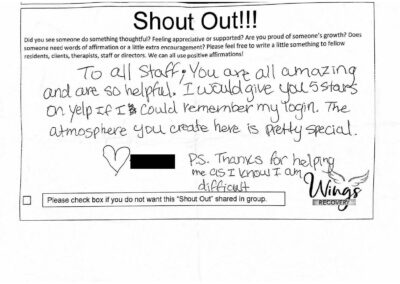 Shout Out!!!
Did you see someone do something thoughtful? Feeling appreciative or supported? Are you proud of someone's growth? Does
someone need words of affirmation or a little extra encouragement? Please feel free to write a little something to fellow
residents, clients, therapists, staff or directors. We can all use positive affirmations!
To all Staff; You are all amazing
and are so helpful. I would give you 5 stars
on yelp If I could remember my login. The
atmosphere you create here is pretty special.
P.S. Thanks for helping
me as I know I am
difficult
Wings
RECOVERY
Please check box if you do not want this "Shout Out" shared in group.